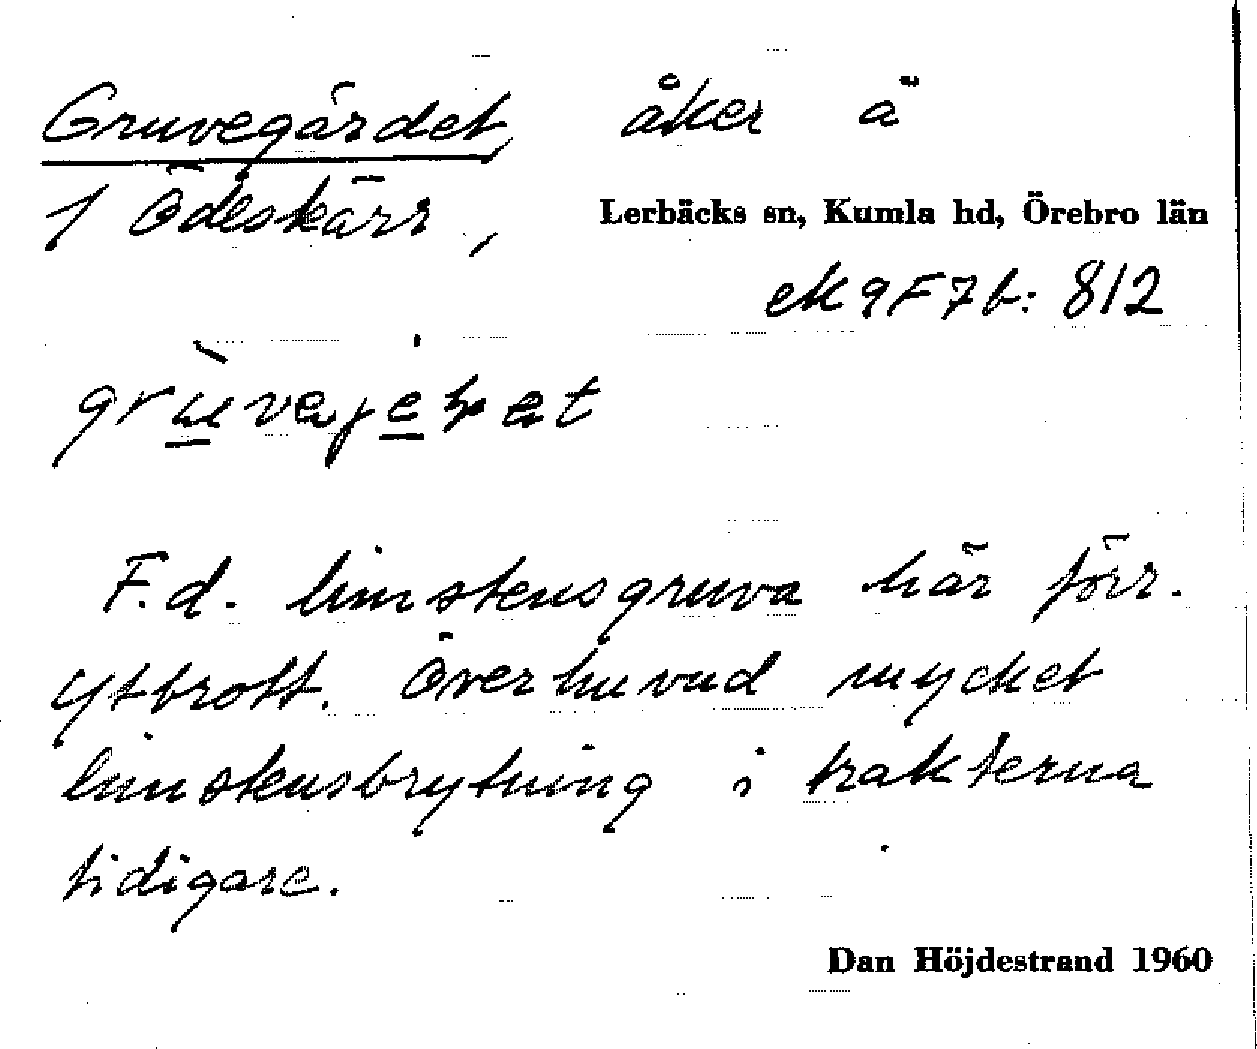 Gruvegärdet, åker ä
1 Ödeskärr, Lerbäcks sn, Kumla hd, Örebro län
ek 9F7b: 812
F.d. limstensgruva här förr.
Ytbrott. Överhuvud mycket
limstensbrytning i trakterna
tidigare.
Dan Höjdestrand 1960